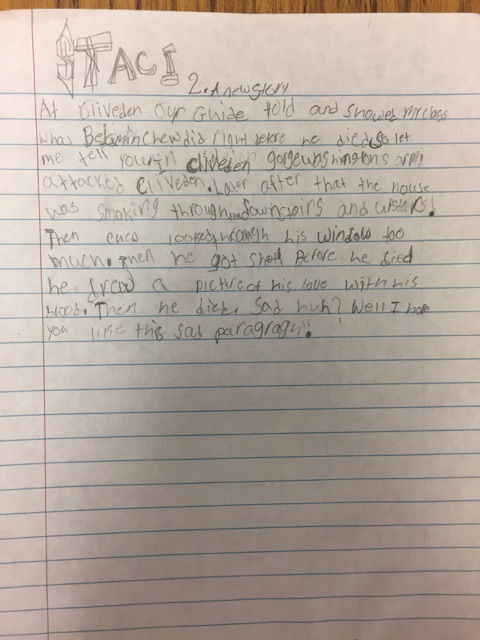 STACI
2. A new Story
At Cliveden Our Guide told and showed my class
whas Bejamin Chew did right before he died so let
me tell you. in cliveden gorge washingtons army
attacked Cliveden. Later after that the house
was smoking through downstairs and upstairs!
Then looked through his window too
much. Then he got shot! Before he died
he drew a picture of his love with his
blood. Then he died. Sad huh? Well I hope
you like this sad paragragh!